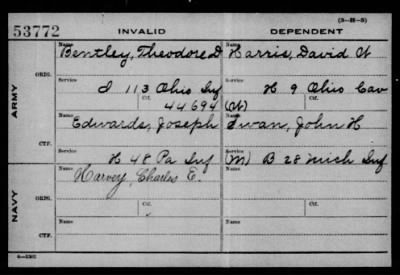 (3-H-3)
53772
INVALID
DEPENDENT
Name
Name
Bentley, Theodore D
Harris, David W
ARMY
ORIG.
Service
Service
I 113 Ohio Inf
H 9 Ohio Cav
Ctf.
Ctf.
44694 (W)
Name
Name
Edwards, Joseph
Swan, John H
CTF.
Service
Service
H 48 Pa Inf
(M) B 28 Mich Inf
NAVY
Name
Name
Harvey, Charles E.
ORIG.
Ctf.
Ctf.
Name
Name
CTF.